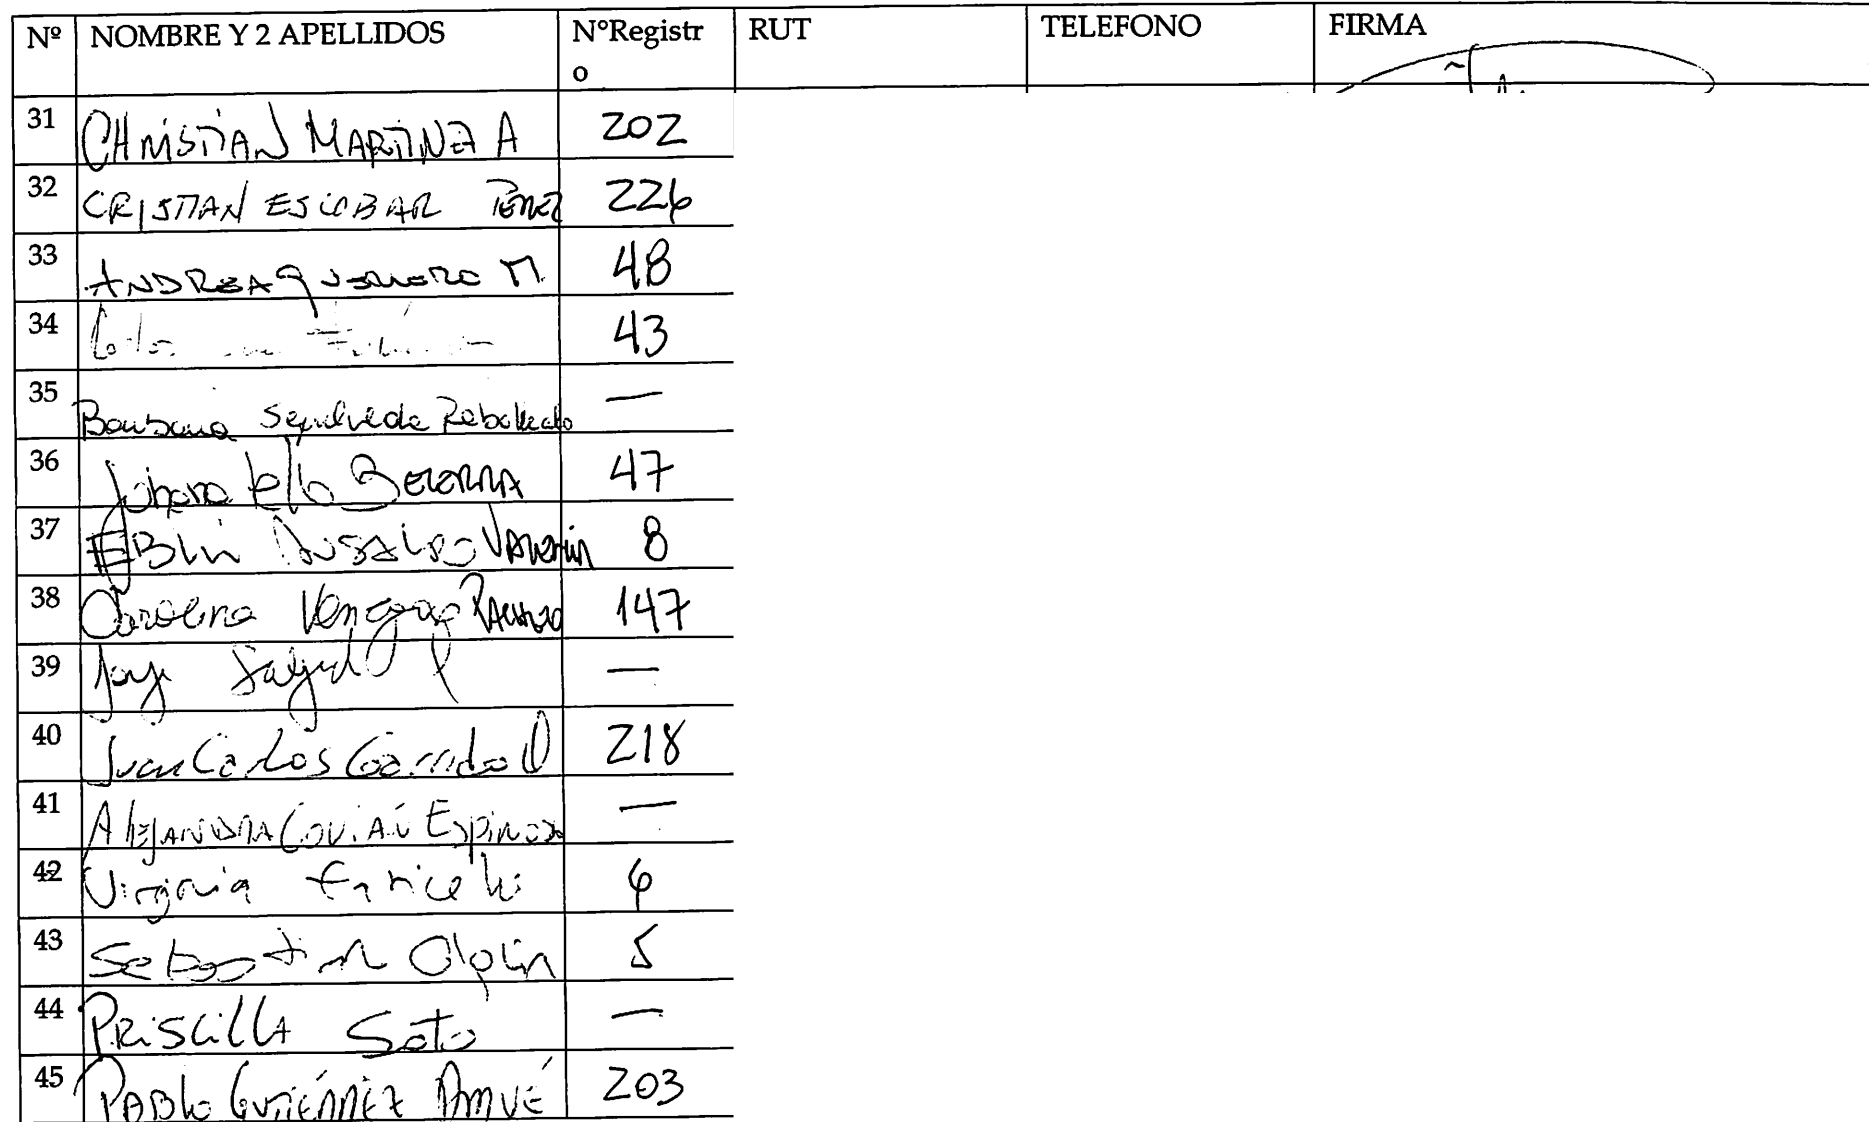 Nº NOMBRE Y 2 APELLIDOS NºRegistro RUT TELEFONO FIRMA
31 CHRISTIAN MARTINEZ A 202
32 CRISTIAN ESCOBAR PEREZ 226
33 ANDREA QUERERO M. 48
34 43
35 Sepulveda Rebolledo —
36 Johana Tello BECERRA 47
37 8
38 Carolina Venegas 147
39 Jorge Salgado —
40 Juan Carlos Garrido 218
41 ALEJANDRA COVIAN ESPINOZA —
42 Virginia 6
43 Sebastian 5
44 PRISCILLA Soto —
45 PABLO GUTIÉRREZ 203